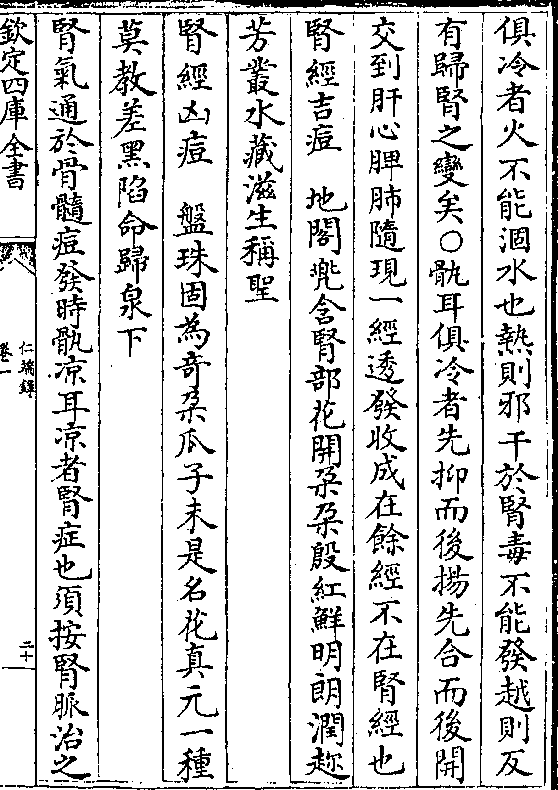 俱冷者火不能涸水也熱則邪干於腎毒不能發越則反
有歸腎之變矣○骩耳俱冷者先抑而後揚先合而後開
交到肝心脾肺隨現一經透發收成在餘經不在腎經也
腎經吉痘　地閣兠含腎部花開朶朶殷紅鮮明朗潤趂
芳叢水藏滋生稱聖
腎經凶痘　盤珠固為奇朶瓜子未是名花真元一種
莫教差黑陷命歸泉下
腎氣通於骨髓痘發時骩凉耳凉者腎症也須按腎脈治之
欽定四庫全書
仁端錄
卷一
二十